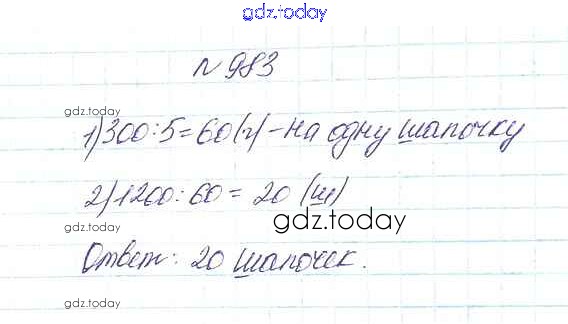 gdz.today
№ 983
gdz.today
1) 300:5=60(г)-на одну шапочку
2) 1200:60=20 (ш)
gdz.today
gdz.today
Ответ: 20 шапочек.
gdz.today